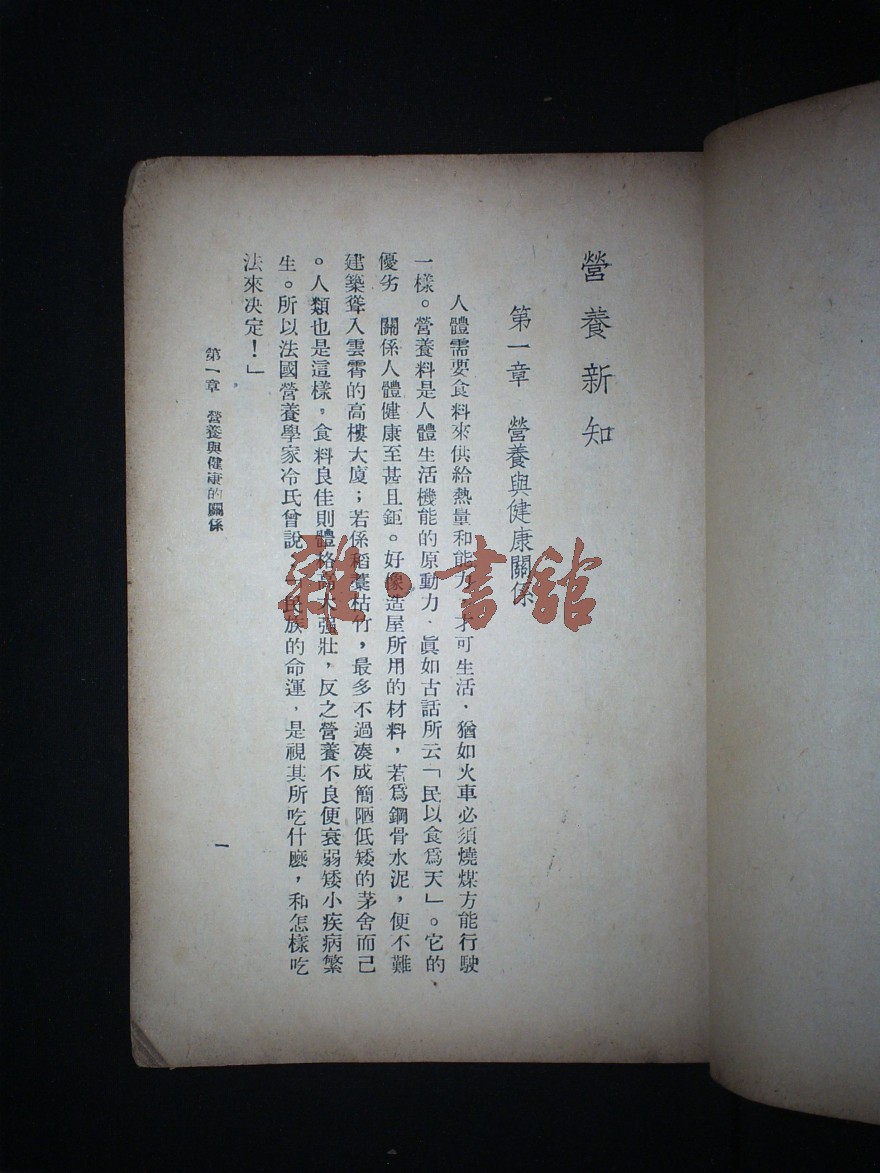 營養新知
第一章　營養與健康關係
人體需要食料來供給熱量和能力 才可生活，猶如火車必須燒煤方能行駛
一樣。營養料是人體生活機能的原動力．眞如古話所云「民以食爲天」。它的
優劣　關係人體健康至甚且鉅。好像造屋所用的材料，若爲鋼骨水泥，便不難
建築聳入雲霄的高樓大廈；若係稻藁枯竹，最多不過凑成簡陋低矮的茅舍而已
。人類也是這樣，食料良佳則體格高大强壯，反之營養不良便衰弱矮小疾病繁
生。所以法國營養學家冷氏曾說 民族的命運，是視其所吃什麽，和怎樣吃
法來决定！」
第一章　營養與健康的關係
一
雜·書館